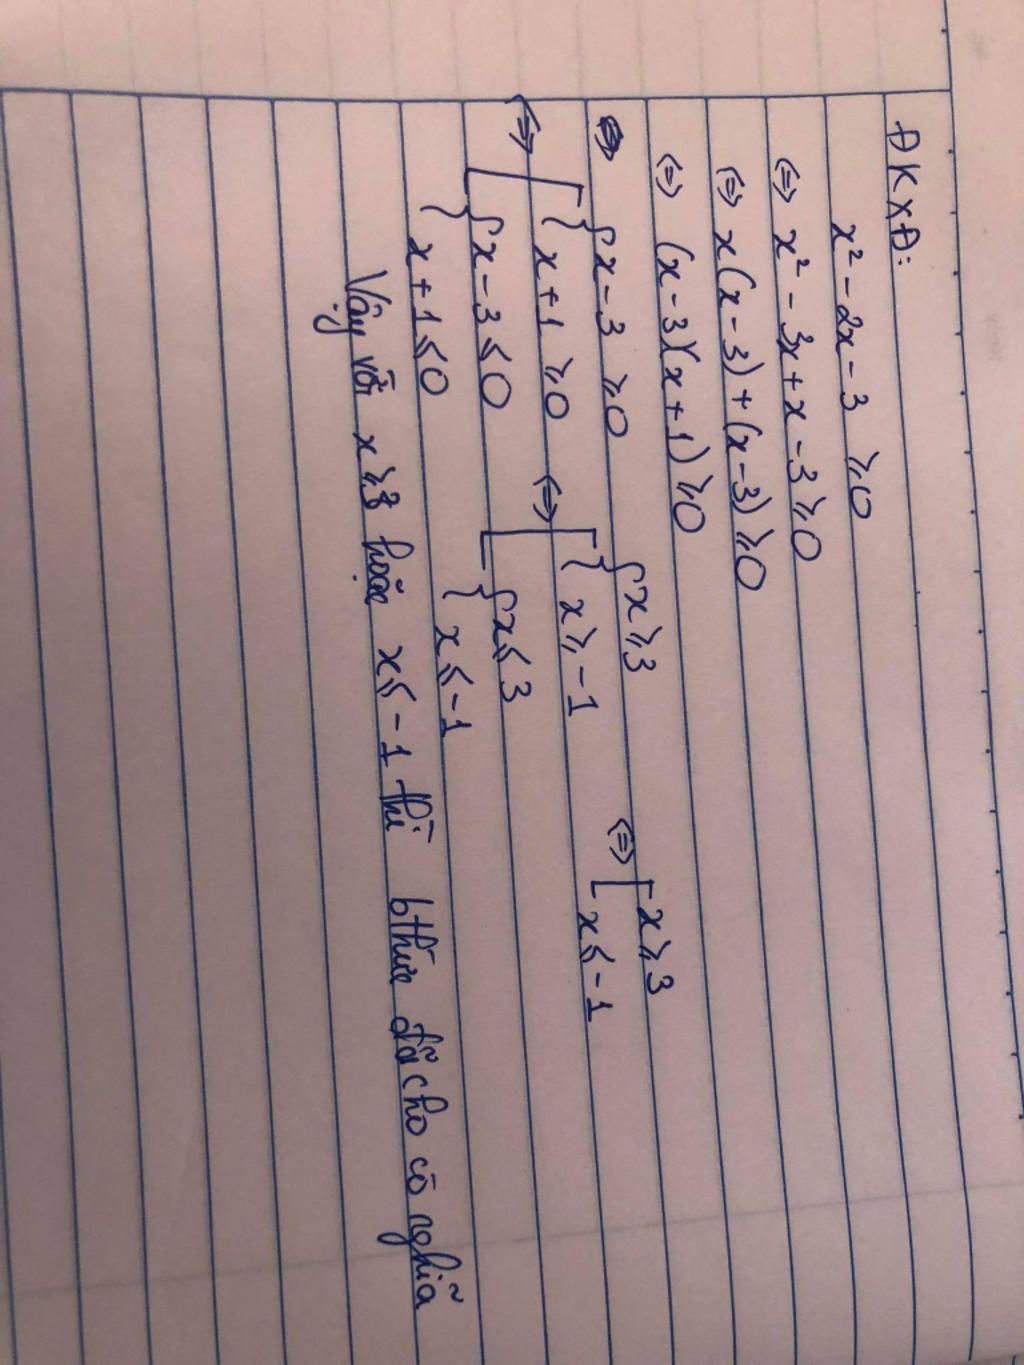 ĐKXĐ:
x² - 2x - 3 ⩾ 0
⇔ x² - 3x + x - 3 ⩾ 0
⇔ x(x - 3) + (x - 3) ⩾ 0
⇔ (x - 3)(x + 1) ⩾ 0
⇔ [ { x - 3 ⩾ 0 ⇔ [ { x ⩾ 3 ⇔ [ x ⩾ 3
{ x + 1 ⩾ 0 { x ⩾ -1 x ⩽ -1
{ x - 3 ⩽ 0 { x ⩽ 3
{ x + 1 ⩽ 0 { x ⩽ -1
Vậy với x ⩾ 3 hoặc x ⩽ -1 thì bthức đã cho có nghĩa